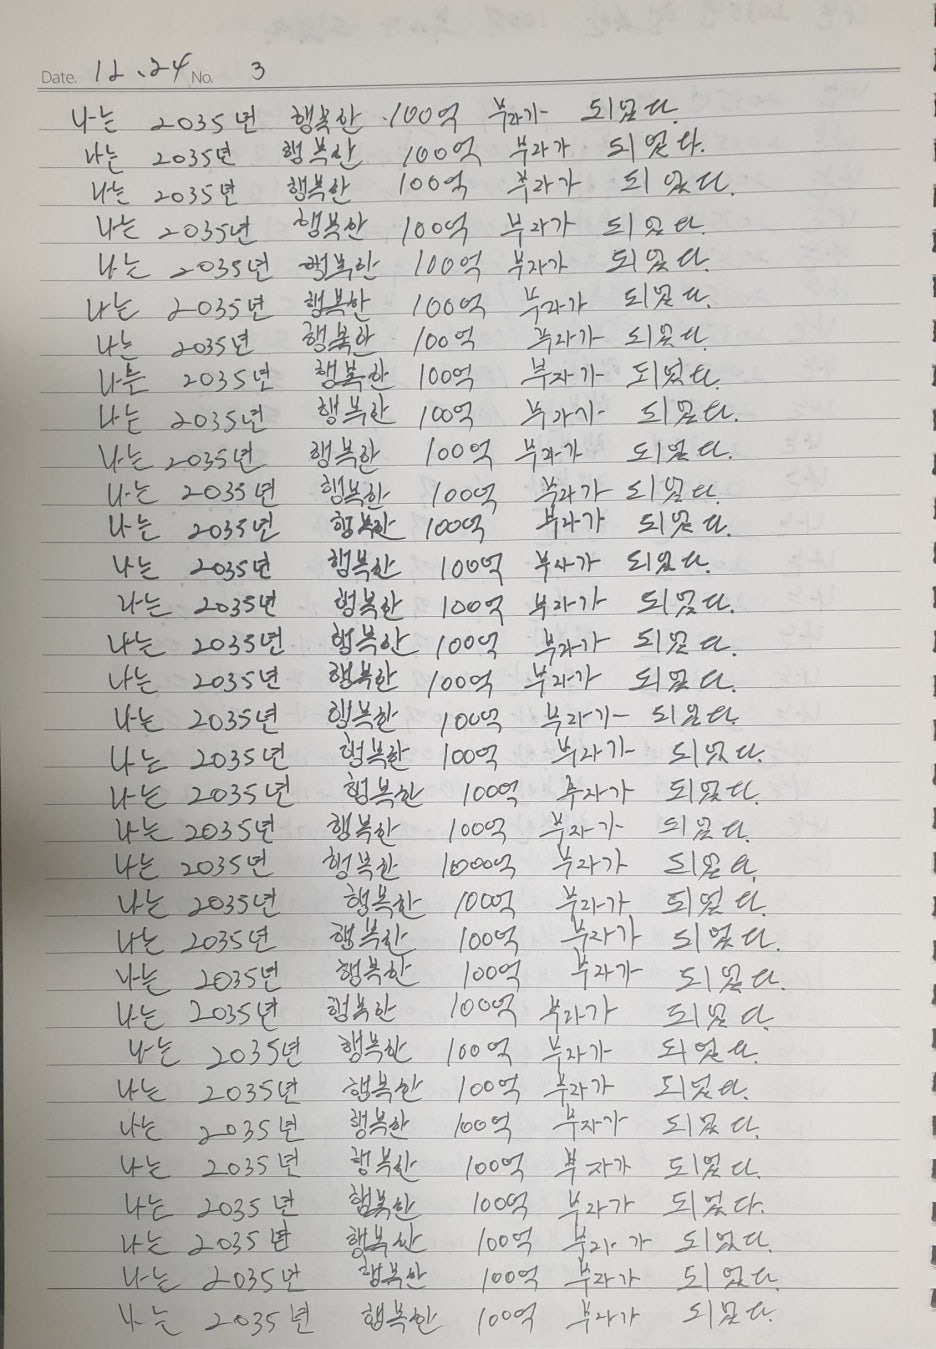 Date. 12.24 No. 3
나는 2035년 행복한 100억 부자가 되었다.
나는 2035년 행복한 100억 부자가 되었다.
나는 2035년 행복한 100억 부자가 되었다.
나는 2035년 행복한 100억 부자가 되었다.
나는 2035년 행복한 100억 부자가 되었다.
나는 2035년 행복한 100억 부자가 되었다.
나는 2035년 행복한 100억 부자가 되었다.
나는 2035년 행복한 100억 부자가 되었다.
나는 2035년 행복한 100억 부자가 되었다.
나는 2035년 행복한 100억 부자가 되었다.
나는 2035년 행복한 100억 부자가 되었다.
나는 2035년 행복한 100억 부자가 되었다.
나는 2035년 행복한 100억 부자가 되었다.
나는 2035년 행복한 100억 부자가 되었다.
나는 2035년 행복한 100억 부자가 되었다.
나는 2035년 행복한 100억 부자가 되었다.
나는 2035년 행복한 100억 부자가 되었다.
나는 2035년 행복한 100억 부자가 되었다.
나는 2035년 행복한 100억 부자가 되었다.
나는 2035년 행복한 100억 부자가 되었다.
나는 2035년 행복한 1000억 부자가 되었다.
나는 2035년 행복한 100억 부자가 되었다.
나는 2035년 행복한 100억 부자가 되었다.
나는 2035년 행복한 100억 부자가 되었다.
나는 2035년 행복한 100억 부자가 되었다.
나는 2035년 행복한 100억 부자가 되었다.
나는 2035년 행복한 100억 부자가 되었다.
나는 2035년 행복한 100억 부자가 되었다.
나는 2035년 행복한 100억 부자가 되었다.
나는 2035년 행복한 100억 부자가 되었다.
나는 2035년 행복한 100억 부자가 되었다.
나는 2035년 행복한 100억 부자가 되었다.
나는 2035년 행복한 100억 부자가 되었다.